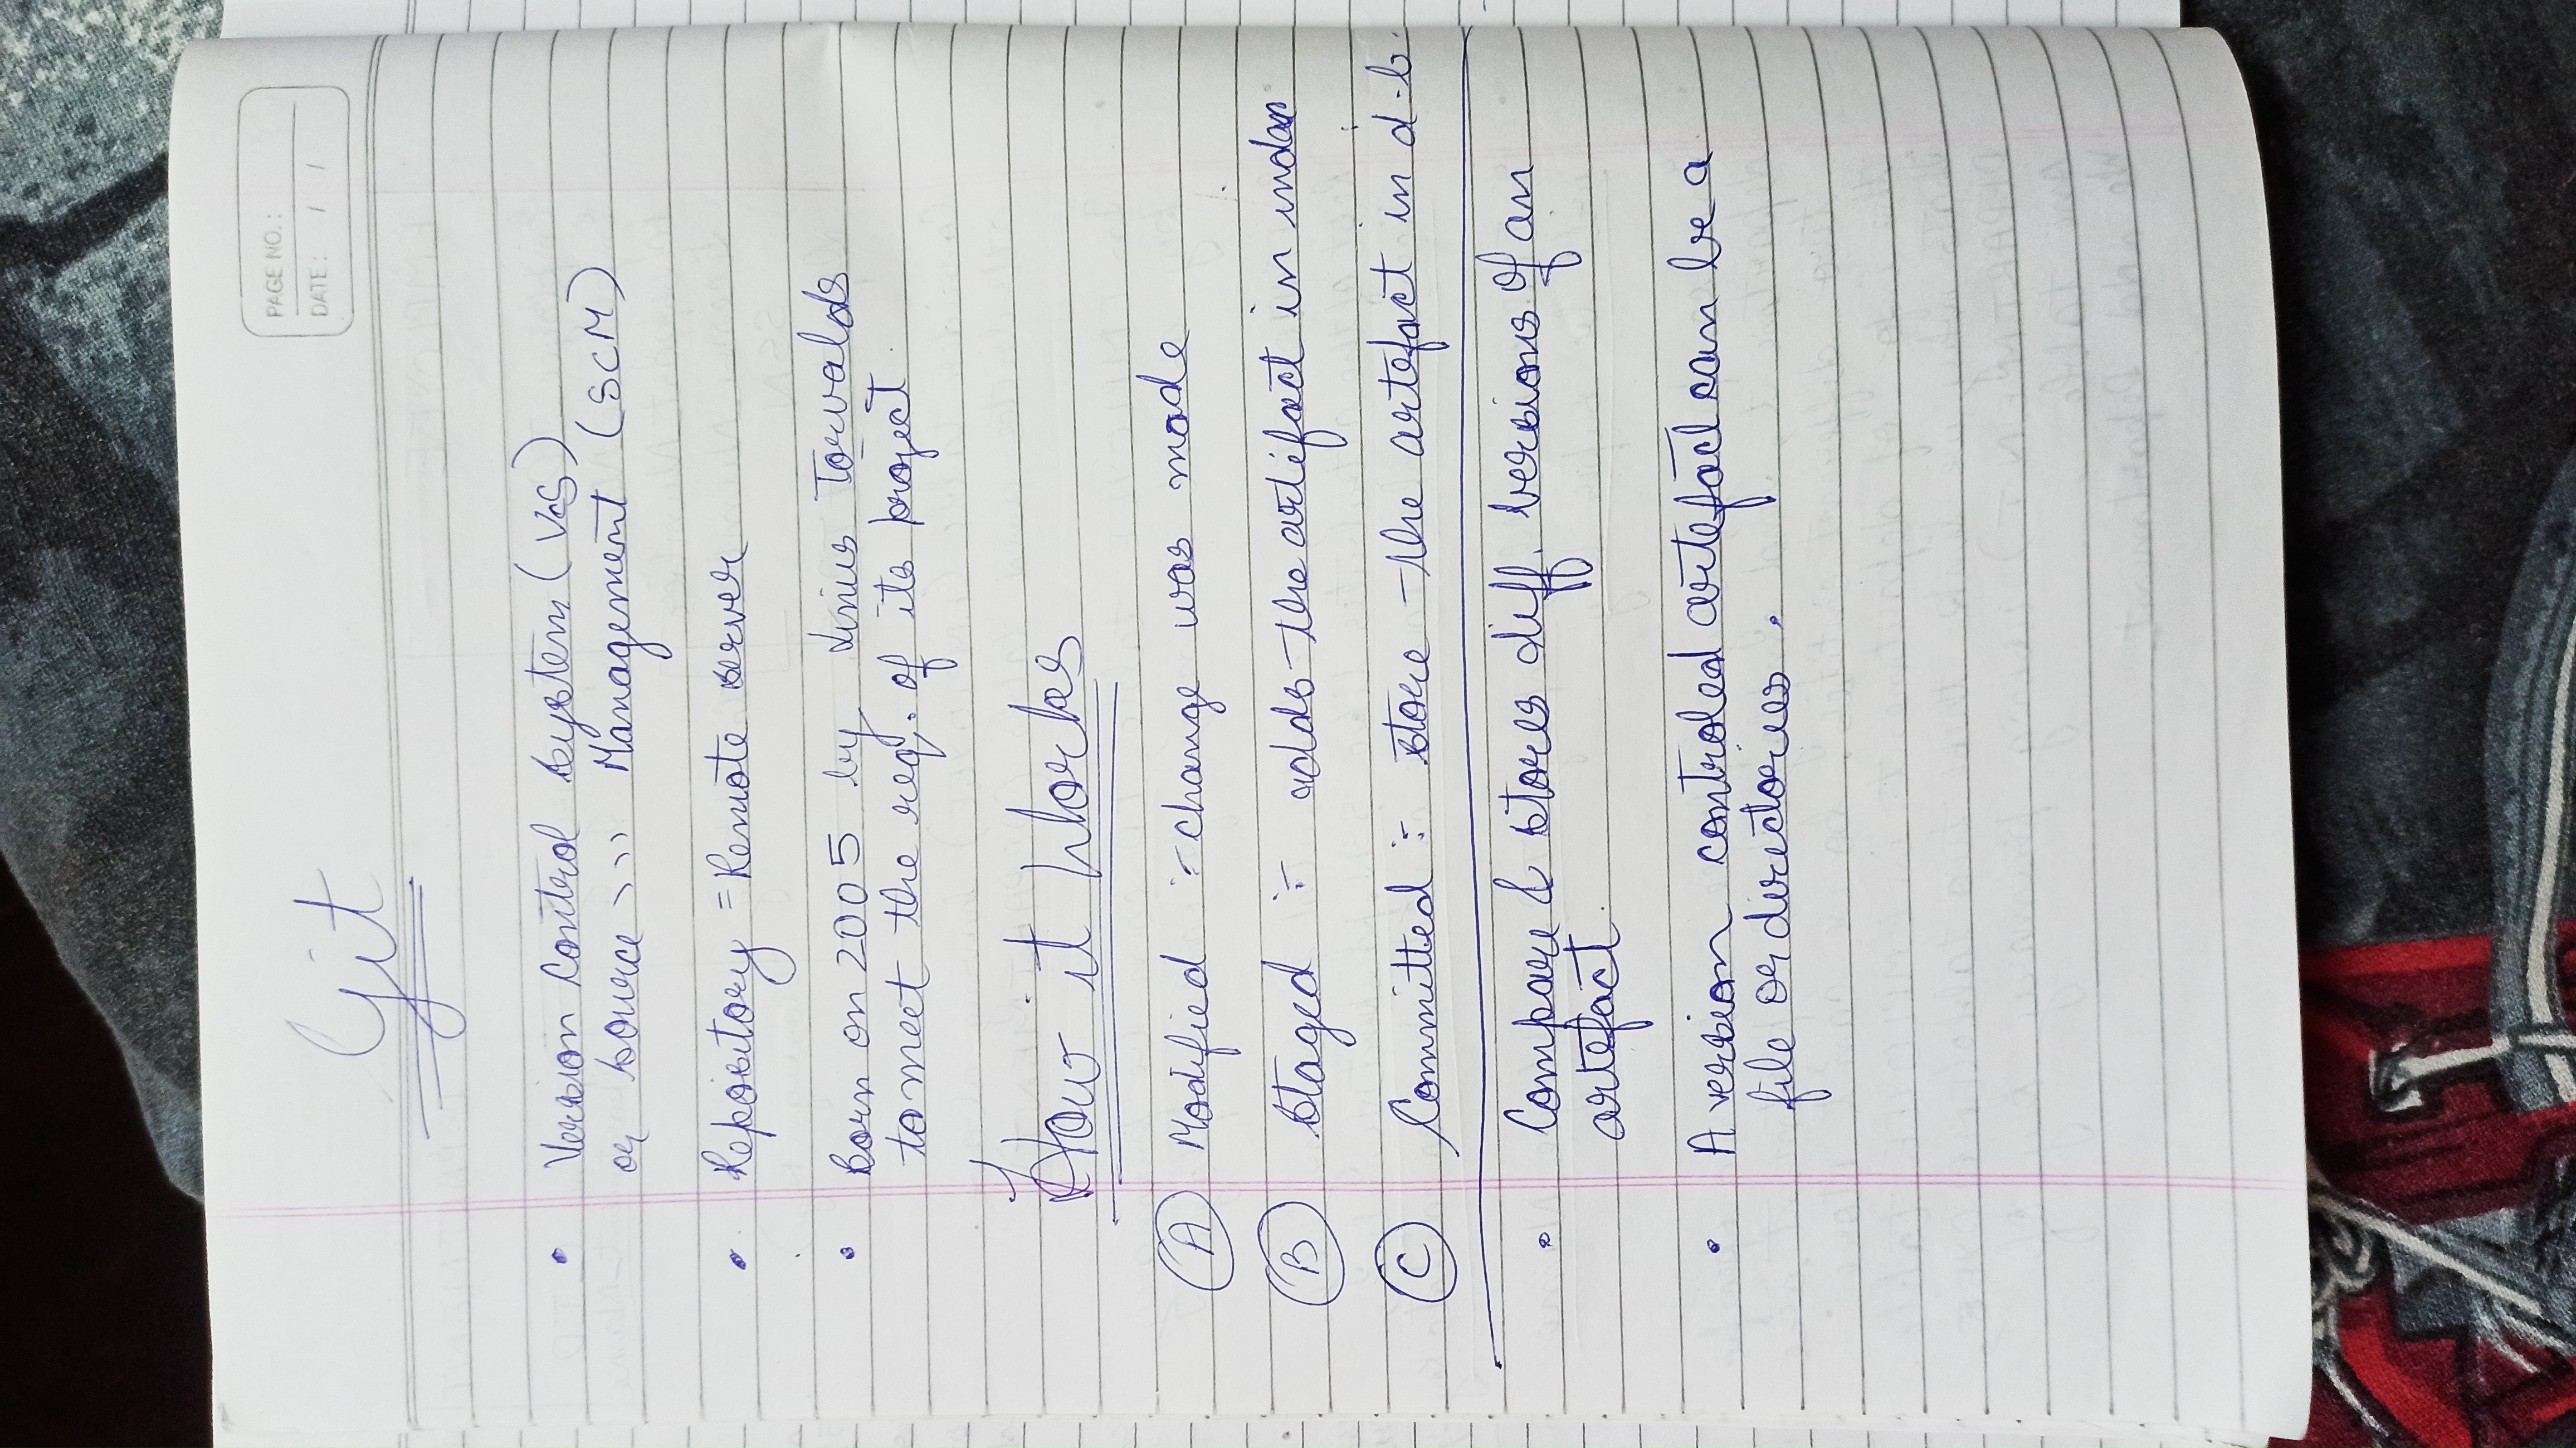 PAGE NO.:
DATE: / /
Git
• Version Control System (VCS)
or Source >>> Management (SCM)
• Repository = Remote server
• Born on 2005 by Linus Torvalds
to meet the req. of its project.
How it Works
A Modified :- change was made
B Staged :- adds the artifact in index
C Committed :- store the artefact in d.b.
• Compare & stores diff. versions of an
artefact.
• A version controled artefact can be a
file or directories.